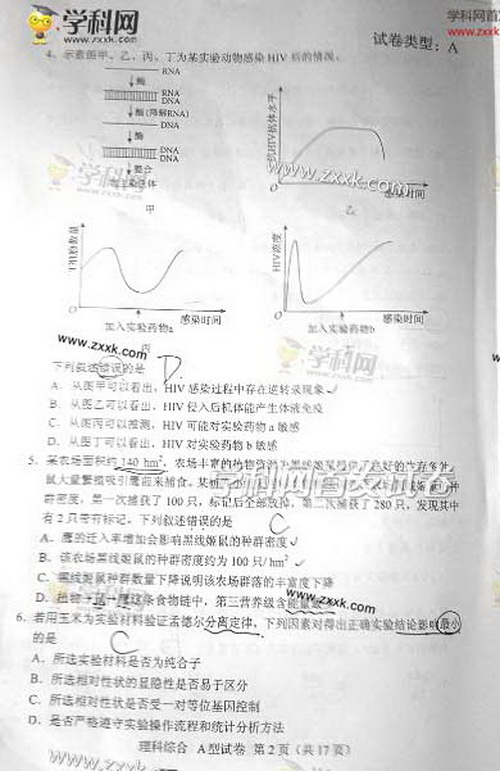 学科网
www.zxxk.com
学科网首发
www.zxxk.com
试卷类型：A
4. 示意图甲、乙、丙、丁为某实验动物感染 HIV 后的情况。
RNA
酶
RNA
DNA
酶(降解RNA)
DNA
酶
DNA
DNA
整合
学科网
甲
抗HIV抗体水平
O
www.zxxk.com
感染时间
乙
T细胞数量
O
感染时间
加入实验药物a
丙
HIV浓度
O
感染时间
加入实验药物b
www.zxxk.com
学科网
下列叙述错误的是 D.
A. 从图甲可以看出，HIV 感染过程中存在逆转录现象
B. 从图乙可以看出，HIV 侵入后机体能产生体液免疫
C. 从图丙可以推测，HIV 可能对实验药物 a 敏感
D. 从图丁可以看出，HIV 对实验药物 b 敏感
5. 某农场面积约 140 hm²，农场丰富的植物资源为黑线姬鼠提供了良好的生存条件，
鼠大量繁殖吸引鹰前来捕食。某
学科网首发试卷
群密度，第一次捕获了 100 只，标记后全部放掉，第二次捕获了 280 只，发现其中
有 2 只带有标记。下列叙述错误的是 C
A. 鹰的迁入率增加会影响黑线姬鼠的种群密度
B. 该农场黑线姬鼠的种群密度约为 100 只/hm²
C. 黑线姬鼠种群数量下降说明该农场群落的丰富度下降
D. 植物→鼠→鹰这条食物链中，第三营养级含能量
www.zxxk.com
6. 若用玉米为实验材料验证孟德尔分离定律，下列因素对得出正确实验结论影响最小
的是 C
A. 所选实验材料是否为纯合子
B. 所选相对性状的显隐性是否易于区分
C. 所选相对性状是否受一对等位基因控制
D. 是否严格遵守实验操作流程和统计分析方法
理科综合 A型试卷 第 2 页（共 17 页）
www.zxxk.com